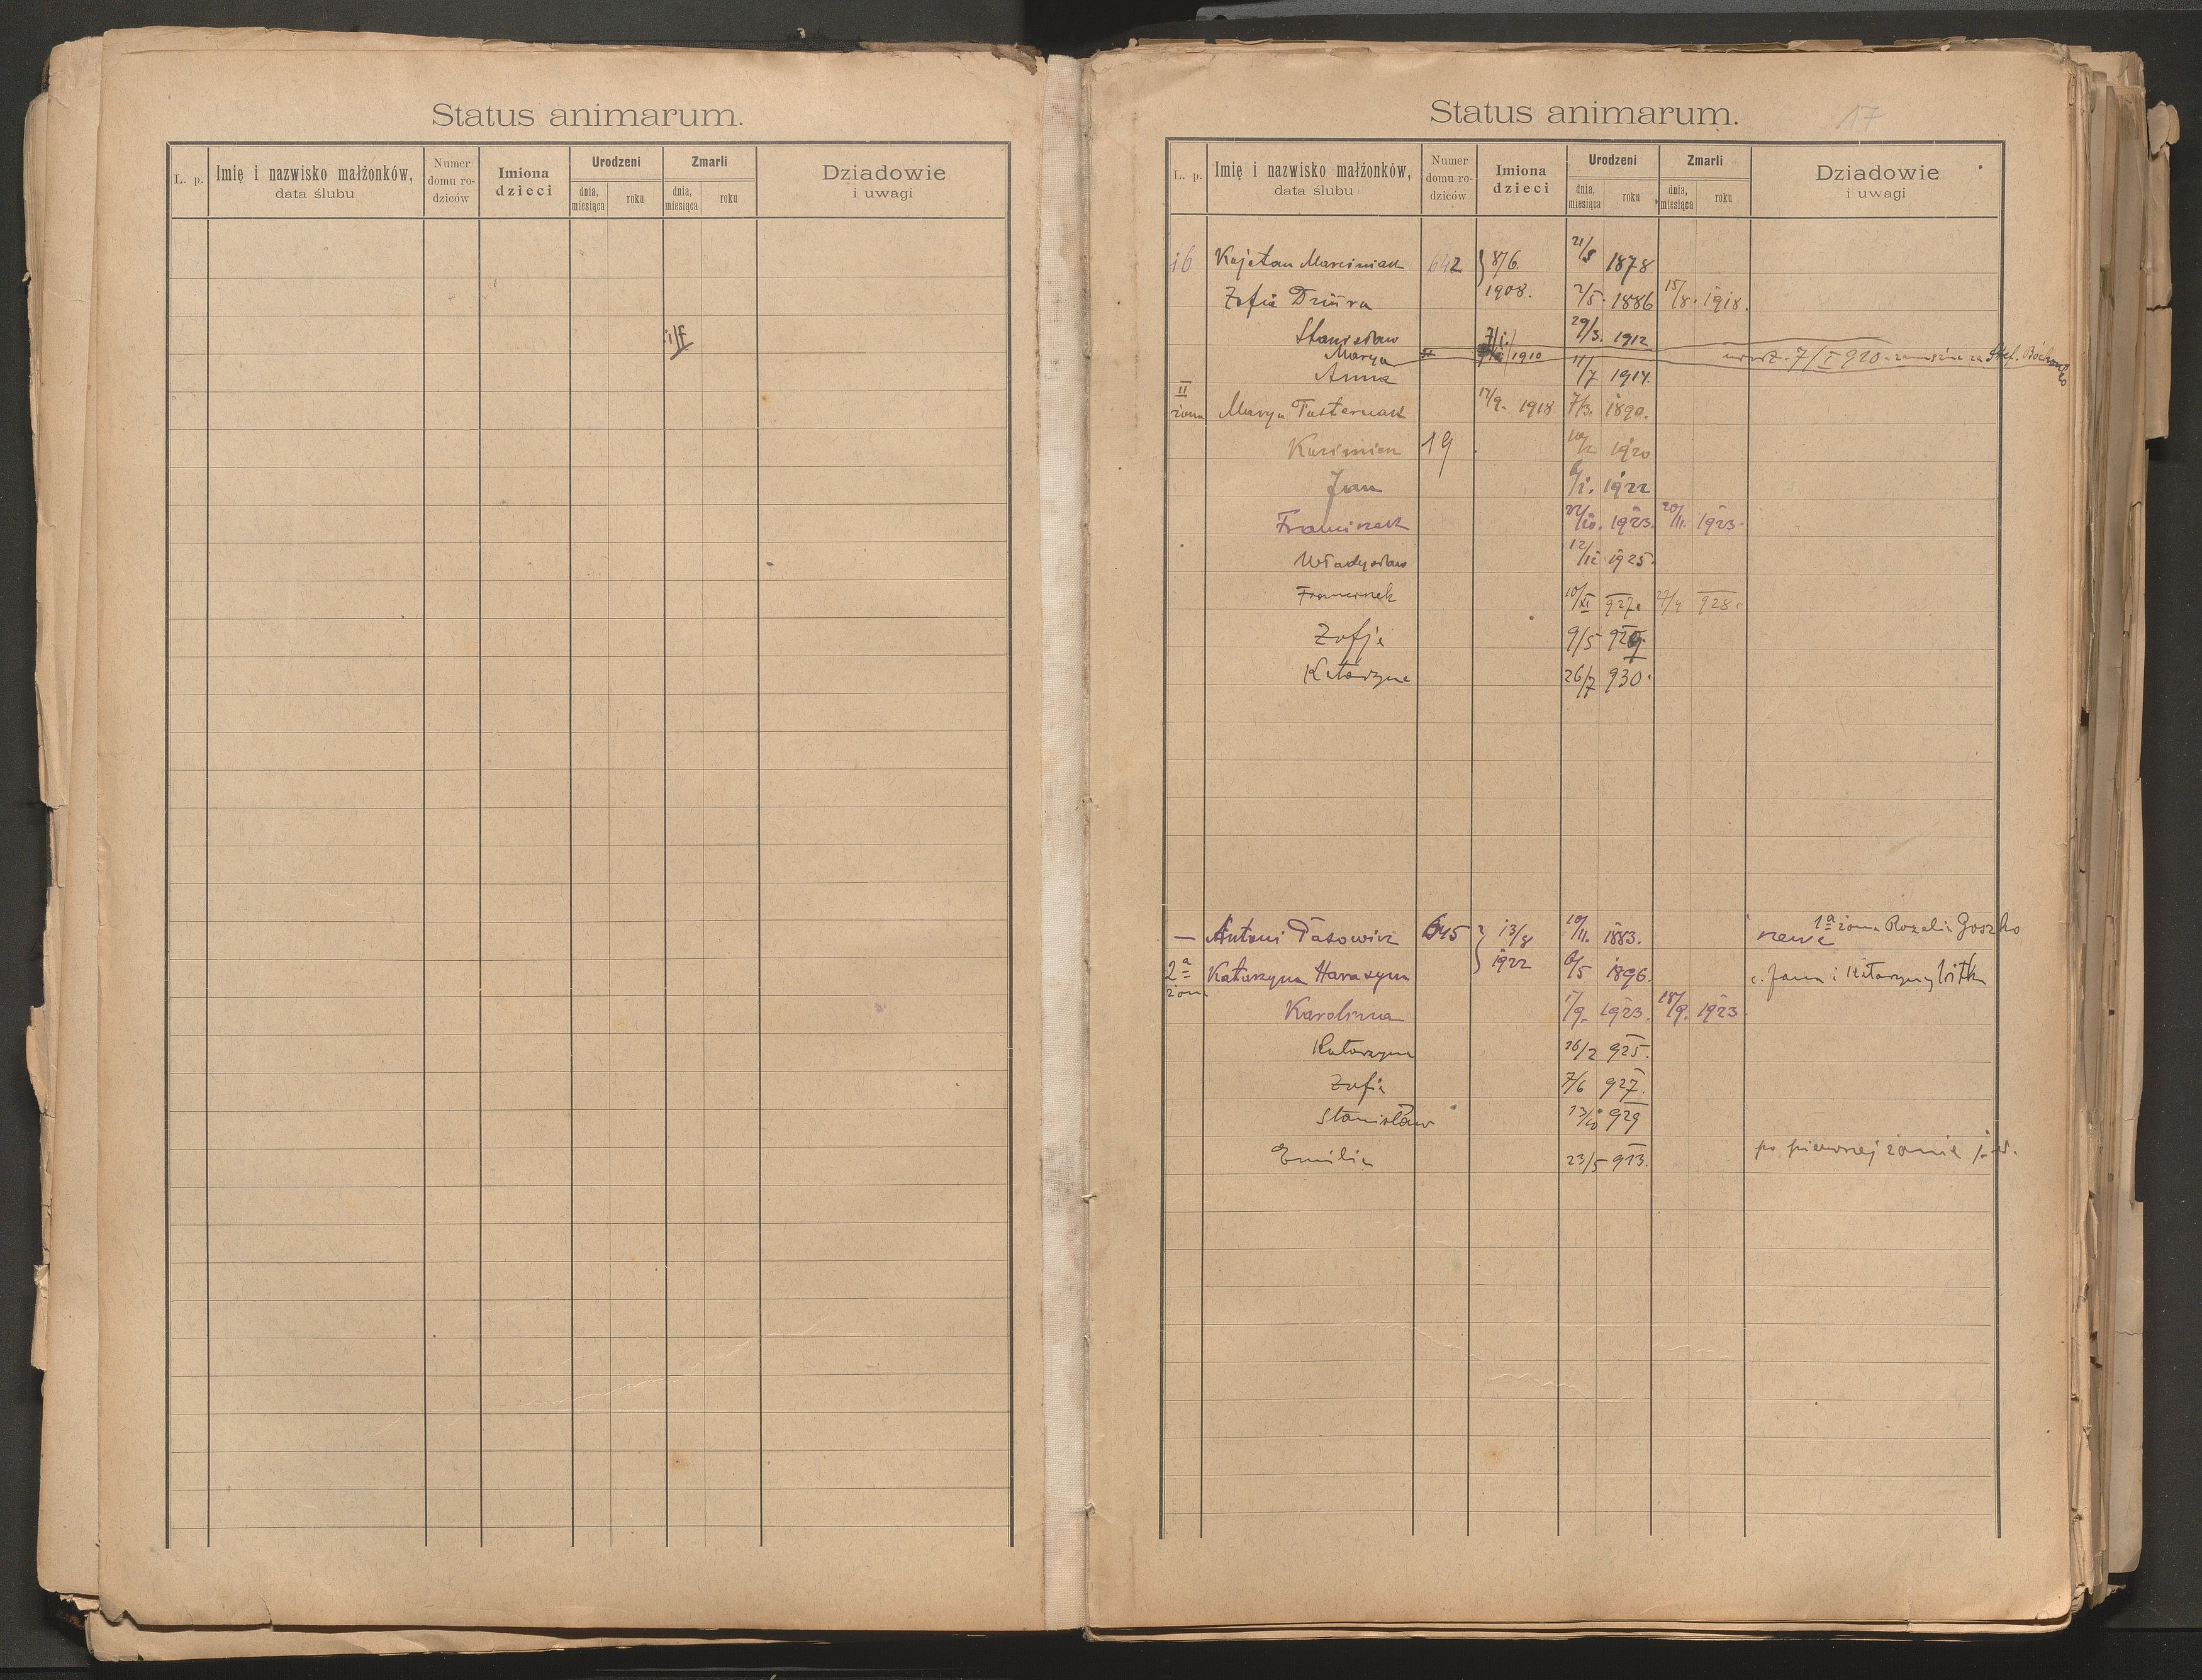 Status animarum.
L. p.
Imię i nazwisko małżonków,
data ślubu
Numer
domu ro-
dziców
Imiona
dzieci
Urodzeni
dnia,
miesiąca
roku
Zmarli
dnia,
miesiąca
roku
Dziadowie
i uwagi
Status animarum. 17
L. p.
Imię i nazwisko małżonków,
data ślubu
Numer
domu ro-
dziców
Imiona
dzieci
Urodzeni
dnia,
miesiąca
roku
Zmarli
dnia,
miesiąca
roku
Dziadowie
i uwagi
16 Kajetan Marciniak 642 8/6. 21/8 1878
Zofia 1908. 2/5. 1886 15/8. 1918.
Stanisław 7/1. 29/3. 1912
Marya 1910 7/I 920
Anna 11/7 1914.
II
żona Marya Pasternak 17/9. 1918 7/3. 1890.
Kazimierz 19 1920
Jan 6/1. 1922
Franciszek 22/10. 1923. 20/11. 1923.
Władysław 12/12 1925.
Franciszek 10/XI 927. 27/4 928.
Zofja 9/5 929.
Katarzyna 26/7 930.
1a żona Rozalia Goszko
— Antoni Pasowicz 645 13/8 10/11. 1883.
2a żona Katarzyna Harasym 1922 6/5 1896. c. Jana i Katarzyny
Karolina 1/9. 1923. 18/9. 1923
Katarzyna 26/2 925.
Zofia 7/6 927.
Stanisław 13/10 929
Emilia 23/5 913. po pierwszej żonie